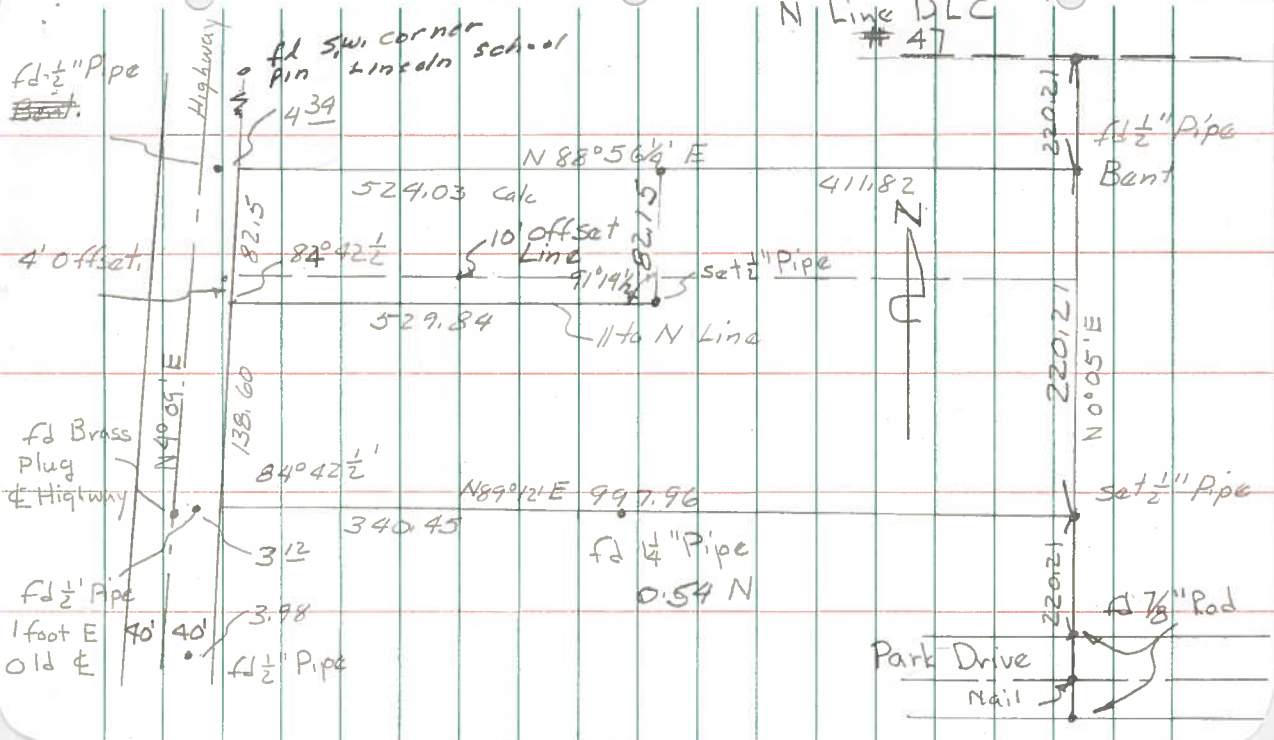 N Line DLC
# 47
fd. S.W. corner
Pin Lincoln School
fd. 1/2" Pipe
Bent.
Highway
4 34
220.21
fd 1/2" Pipe
Bent
N 88°56 1/4' E
524.03 Calc
411.82
82.5
82.15
N
4' Offset.
84°42 1/2
10' Offset
Line
91°19 1/2
set 1/2" Pipe
529.84
// to N Line
220.21
N 0°05' E
N 4°09' E
138.60
fd Brass
Plug
℄ Higtway
84°42 1/2'
N89°12' E 997.96
set 1/2" Pipe
340.45
3 12
fd 1 1/4" Pipe
0.54 N
220.21
fd 1/2' Pipe
1 foot E
Old ℄
40' 40'
3.98
fd 1/2" Pipe
fd 7/8" Rod
Park Drive
Nail